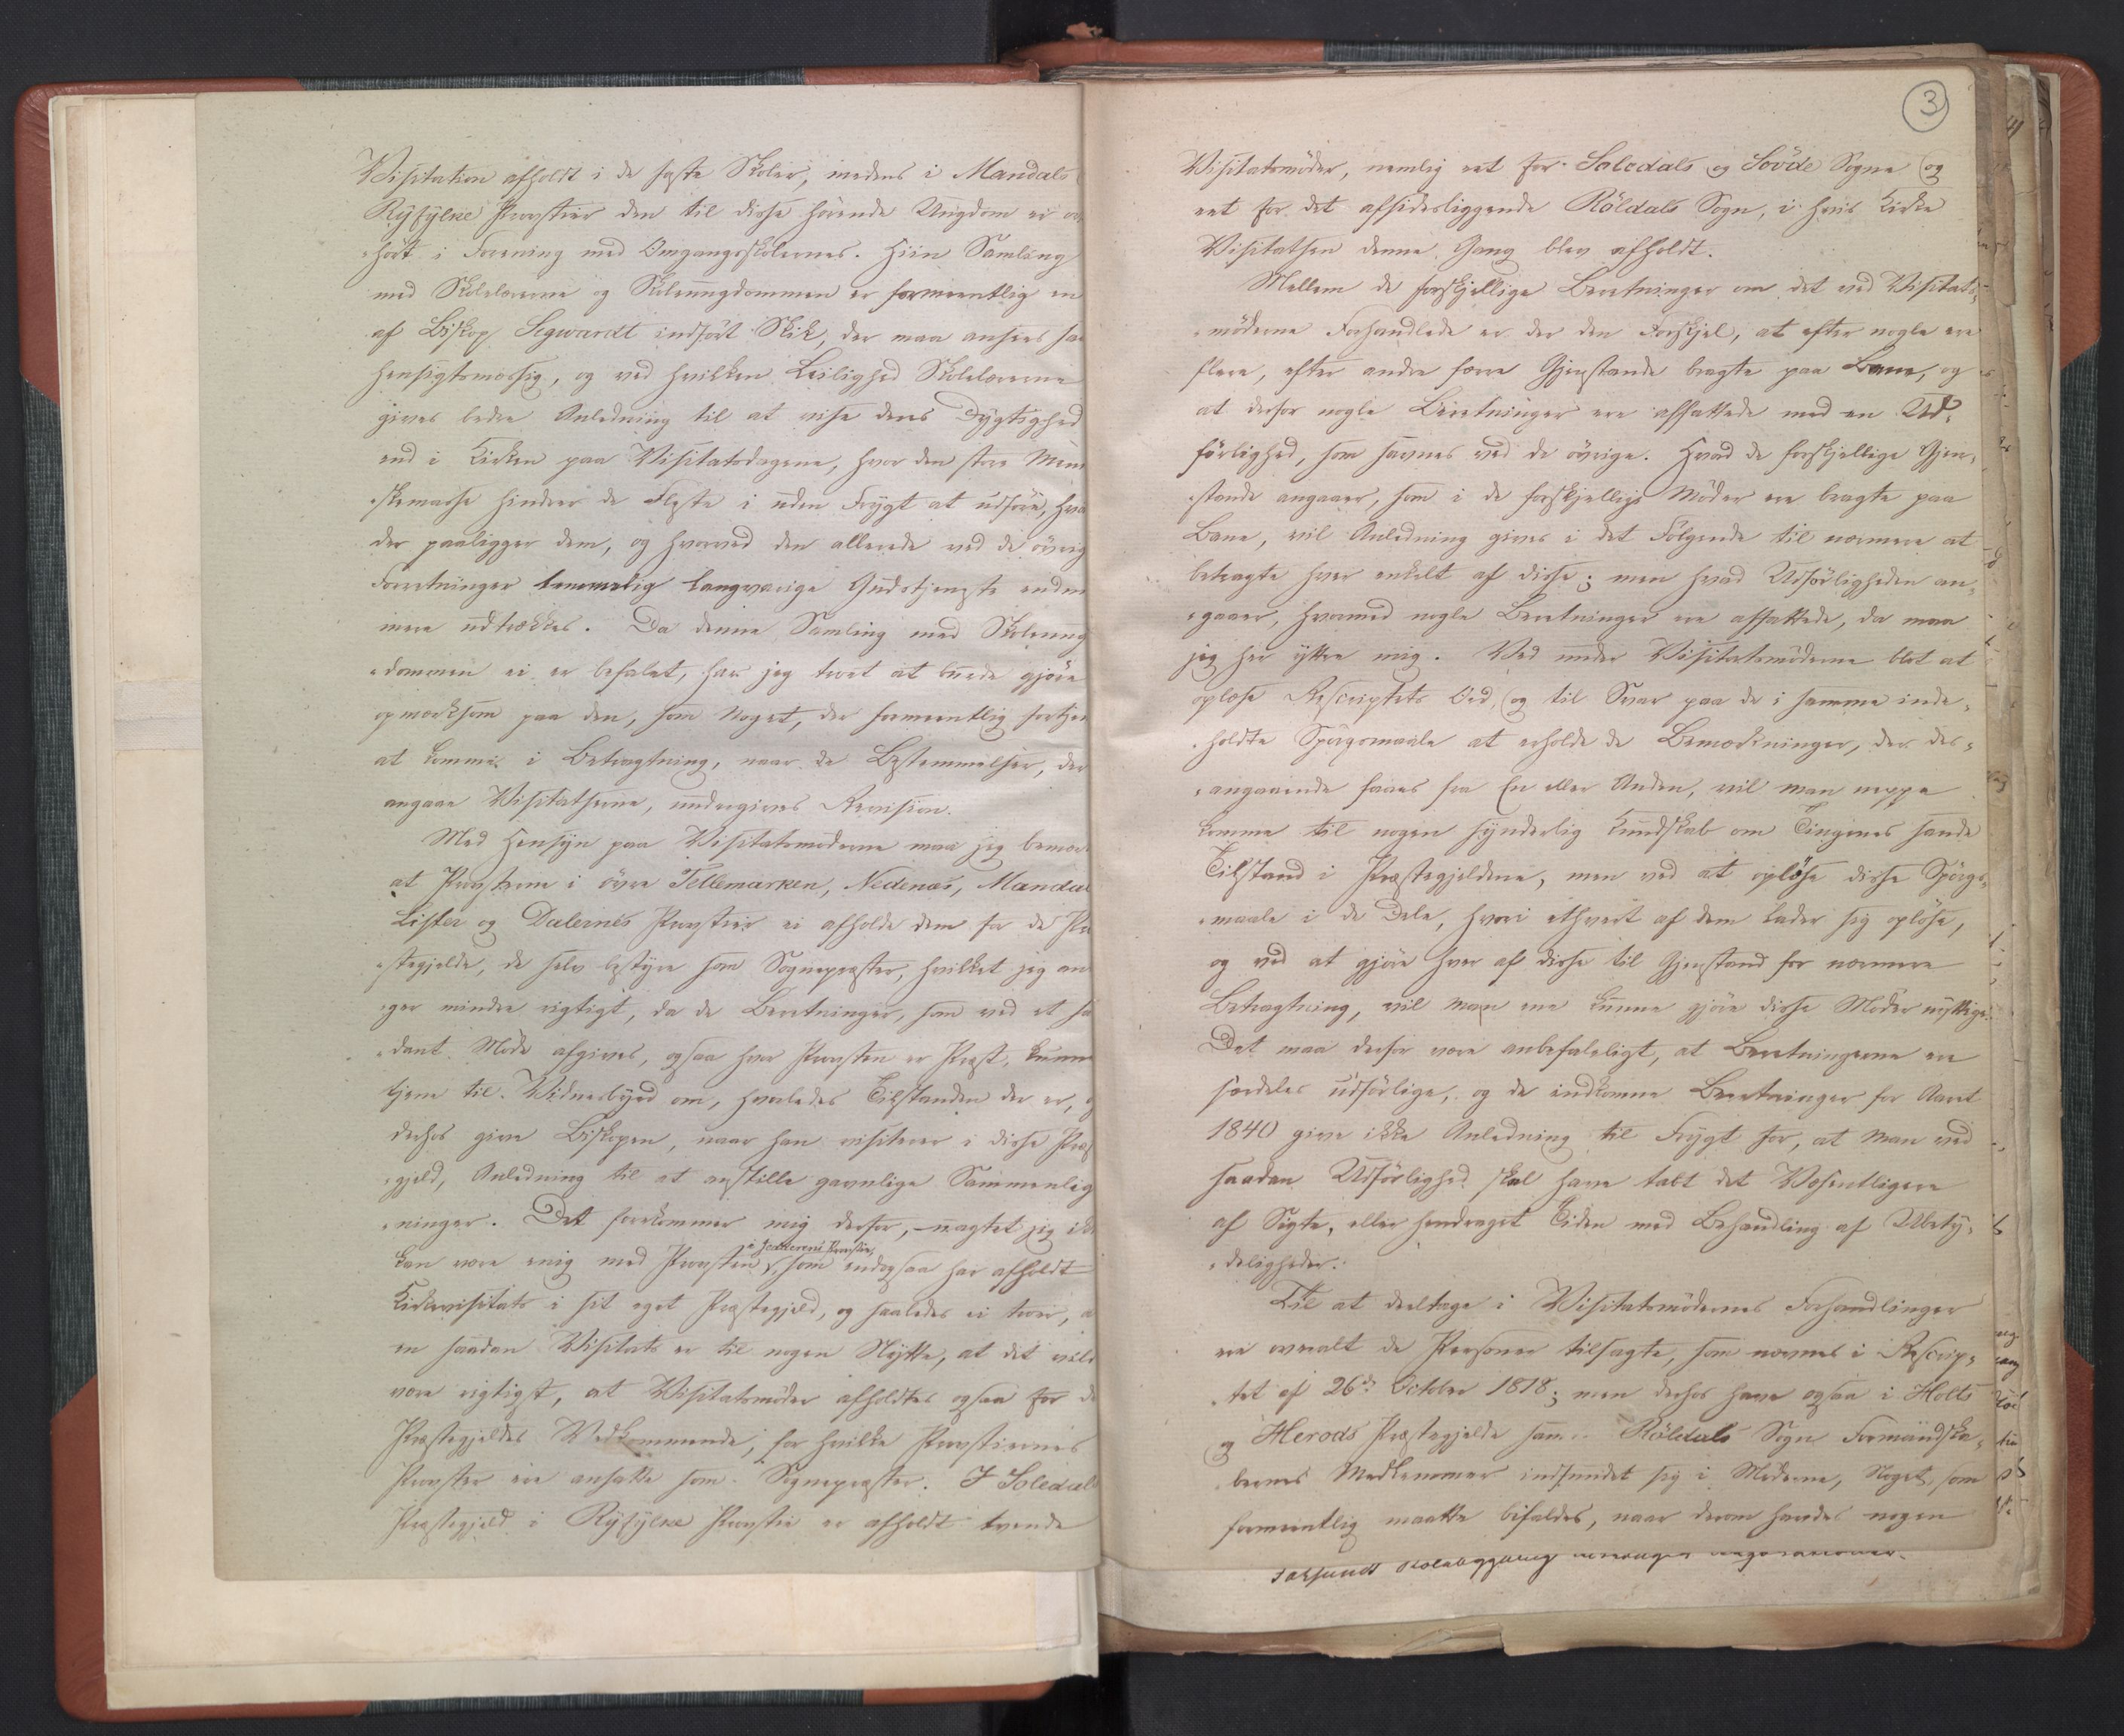 Visitation afholdt i de faste Skoler, medens i Mandals
Ryfylke Provstier den til disse hørende Ungdom er o
-hørt i Forening med Omgangsskolernes. Hiin Samling
med Skolelærerne og Skoleungdommen er formeentlig en
af Biskop Sigwardt indført Skik, der maa ansees saa
hensigtsmæssig, og ved hvilken Leilighed Skolelærerne
gives bedre Anledning til at vise deres Dygtighed
end i Kirken paa Visitatsdagene, hvor den store Men
-skemasse hindrer de Fleste i uden Frygt at udføre, hva
der paaligger dem, og hvorved den allerede ved de øvrig
Forretninger temmelig langvarige Gudstjeneste endn
mere udtrækkes. Da denne Samling med Skoleung
-dommen ei er befalet, har jeg troet at burde gjøre
opmærksom paa den, som Noget, der formeentlig fortjen
at komme i Betragtning, naar de Bestemmelser, der
angaae Visitatserne, undergives Revision.
Med Hensyn paa Visitatsmøderne maa jeg bemær
at Provsterne i øvre Tellemarken, Nedenæs, Mandal
Lister og Dalernes Provstier ei afholde dem for de Præ
-stegjelde, de selv bestyre som Sognepræster, hvilket jeg an
-ser mindre rigtigt, da de Beretninger, som ved et saa
-dant Møde afgives, ogsaa hvor Provsten er Præst, kunne
tjene til Vidnesbyrd om, hvorledes Tilstanden der er, o
derhos give Biskopen, naar han visiterer i disse Præs
-gjeld, Anledning til at anstille gavnlige Sammenlig
-ninger. Det forekommer mig derfor, uagtet jeg ikk
i Jedderens Provstie,
kan være enig med Provsten, som endogsaa har afholdt
Kirkevisitats i sit eget Præstegjeld, og saaledes ei troer, a
en saadan Visitats er til nogen Nytte, at det vild
være rigtigst, at Visitatsmøder afholdtes ogsaa for de
Præstegjeldes Vedkommende, for hvilke Provstiernes
Provster ere ansatte som Sognepræster. I Soledals
Præstegjeld i Ryfylke Provstie er afholdt tvende
3
Visitatsmøder, nemlig eet for Soledals og Sövde Sogne og
eet for det afsidesliggende Röldals Sogn, i hvis Kirke
Visitatsen denne Gang blev afholdt.
Mellem de forskjellige Beretninger om det ved Visitats-
-møderne Forhandlede er der den Forskjel, at efter nogle ere
flere, efter andre færre Gjenstande bragte paa Bane, og
at derfor nogle Beretninger ere affattede med en Ud-
førlighed, som savnes ved de øvrige. Hvad de forskjellige Gjen-
-stande angaaer, som i de forskjellige Møder ere bragte paa
Bane, vil Anledning gives i det Følgende til nærmere at
betragte hver enkelt af disse; men hvad Udførligheden an-
-gaaer, hvormed nogle Beretninger ere affattede, da maa
jeg her yttre mig. Ved under Visitatsmøderne blot at
oplæse Rescriptets Ord, og til Svar paa de i samme inde-
-holdte Spørgsmaale at erholde de Bemærkninger, der des-
-angaaende faaes fra En eller Anden, vil man neppe
komme til nogen synderlig Kundskab om Tingenes sande
Tilstand i Præstegjeldene, men ved at opløse disse Spørgs-
-maale i de Dele, hvori ethvert af dem lader sig opløse,
og ved at gjøre hver af disse til Gjenstand for nærmere
Betragtning, vil man ene kunne gjøre disse Møder nyttige.
Det maa derfor være anbefaleligt, at Beretningerne ere
særdeles udførlige, og de indkomne Beretninger for Aaret
1840 give ikke Anledning til Frygt for, at man ved
saadan Udførlighed skal have tabt det Væsentligere
af Sigte, eller hendraget Tiden med Behandling af Ubety-
-deligheder.
Til at deeltage i Visitatsmødernes Forhandlinger
ere overalt de Personer tilsagte, som nævnes i Rescrip-
-tet af 26de October 1818; men derhos have ogsaa i Holts
og Herods Præstegjelde samt Röldals Sogn Formandska-
-bernes Medlemmer indfundet sig i Møderne, Noget, som
formeentlig maatte bifaldes, naar derom havdes nogen